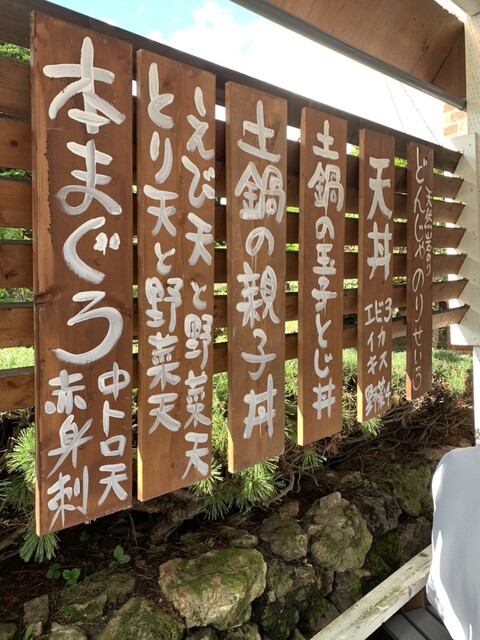 天然岩のり
どんじゃのりせいろ
天丼
エビ3
イカ
キス
野菜4
土鍋の玉子とじ丼
土鍋の親子丼
えび天と野菜天
とり天と野菜天
本まぐろ
中トロ天
赤身刺